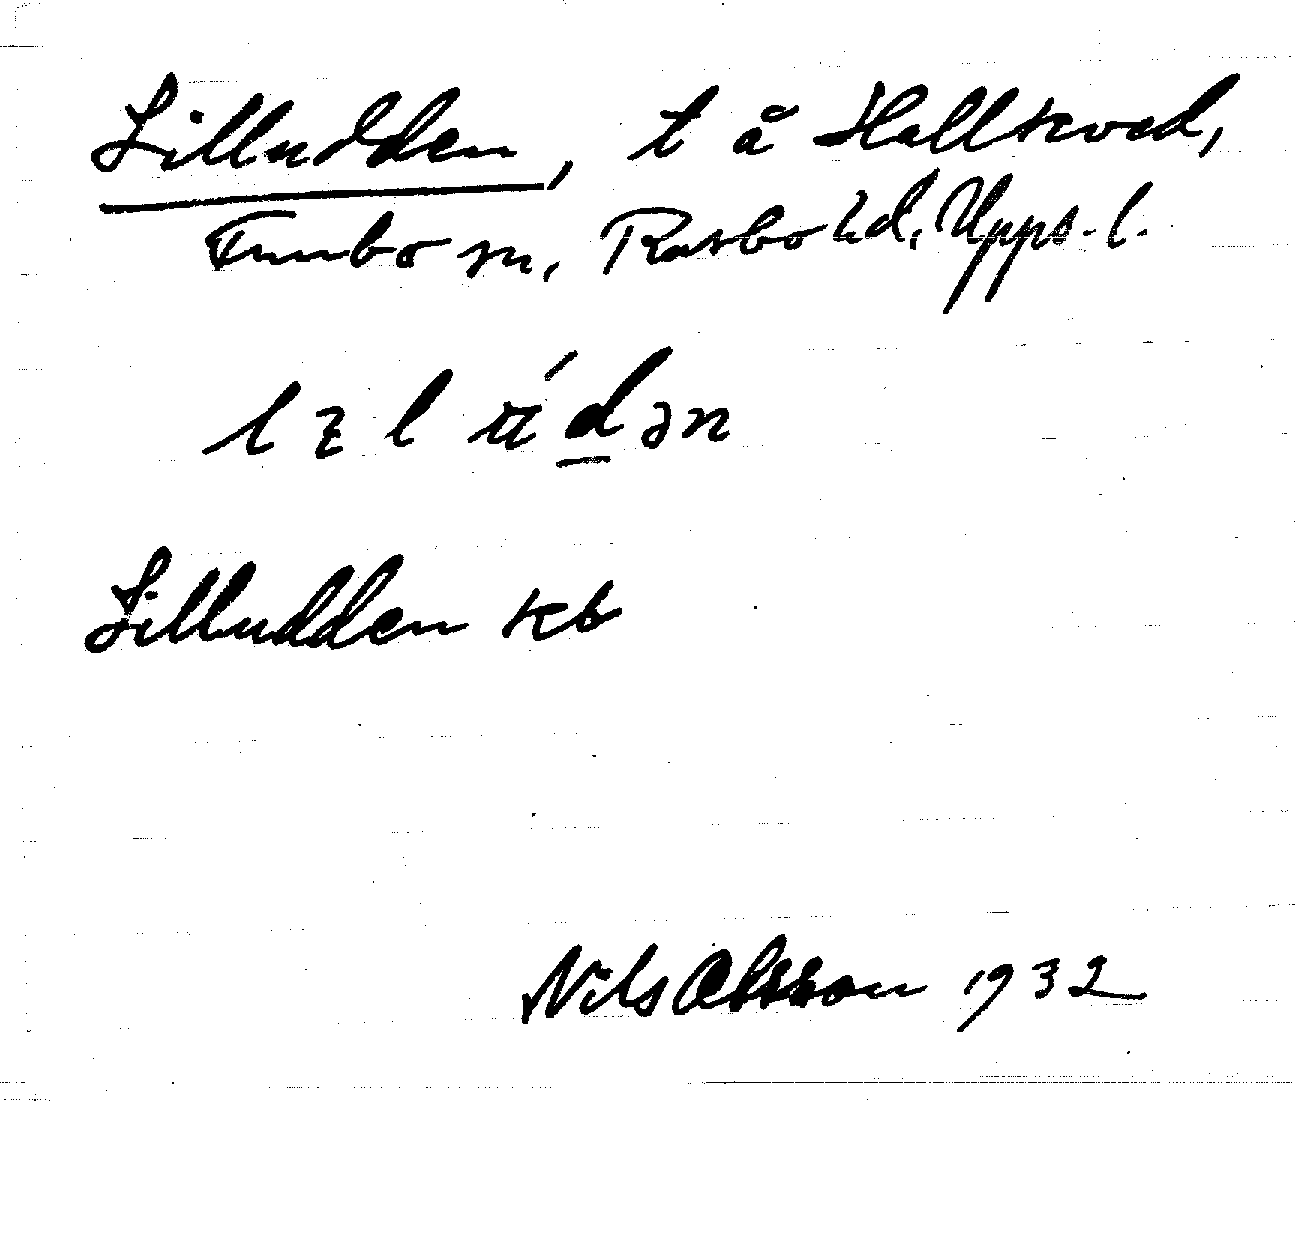 Lilludden, t å Hallkved,
Funbo sn, Rasbo hd, Upps. l.
lɪlu̇́d̲ən
Lilludden kb
Nils Olsson 1932